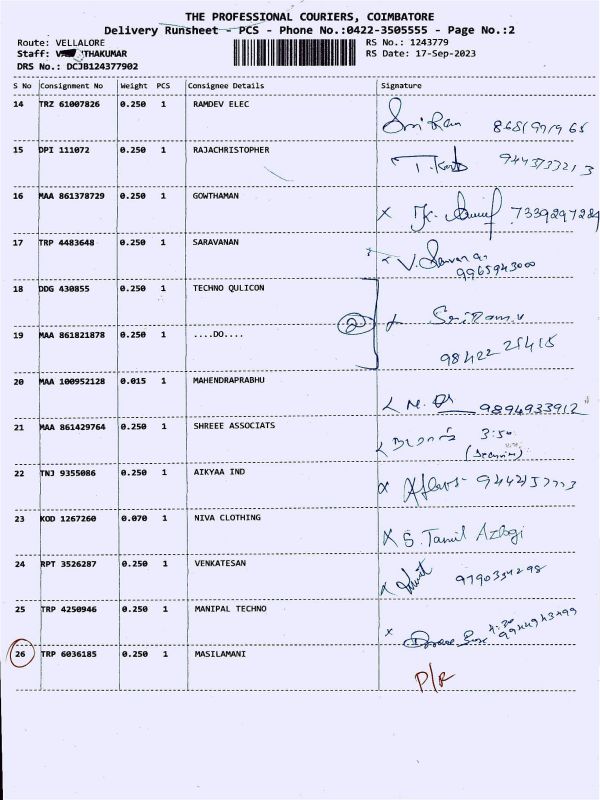 THE PROFESSIONAL COURIERS, COIMBATORE
Delivery Runsheet - PCS - Phone No.:0422-3505555 - Page No.:2
Route: VELLALORE RS No.: 1243779
Staff: THAKUMAR RS Date: 17-Sep-2023
DRS No.: DCJB124377902
S No Consignment No Weight PCS Consignee Details Signature
14 TRZ 61007826 0.250 1 RAMDEV ELEC
15 DPI 111072 0.250 1 RAJACHRISTOPHER
16 MAA 861378729 0.250 1 GOWTHAMAN X 7339297284
17 TRP 4483648 0.250 1 SARAVANAN
9965943000
18 DDG 430855 0.250 1 TECHNO QULICON
2
19 MAA 861821878 0.250 1 ....DO....
98422 25415
20 MAA 100952128 0.015 1 MAHENDRAPRABHU
9894933912
21 MAA 861429764 0.250 1 SHREEE ASSOCIATS 3:50
22 TNJ 9355086 0.250 1 AIKYAA IND
23 KOD 1267260 0.070 1 NIVA CLOTHING
X S. Tamil Azlagi
24 RPT 3526287 0.250 1 VENKATESAN
9790334298
25 TRP 4250946 0.250 1 MANIPAL TECHNO
X
26 TRP 6036185 0.250 1 MASILAMANI
P/R